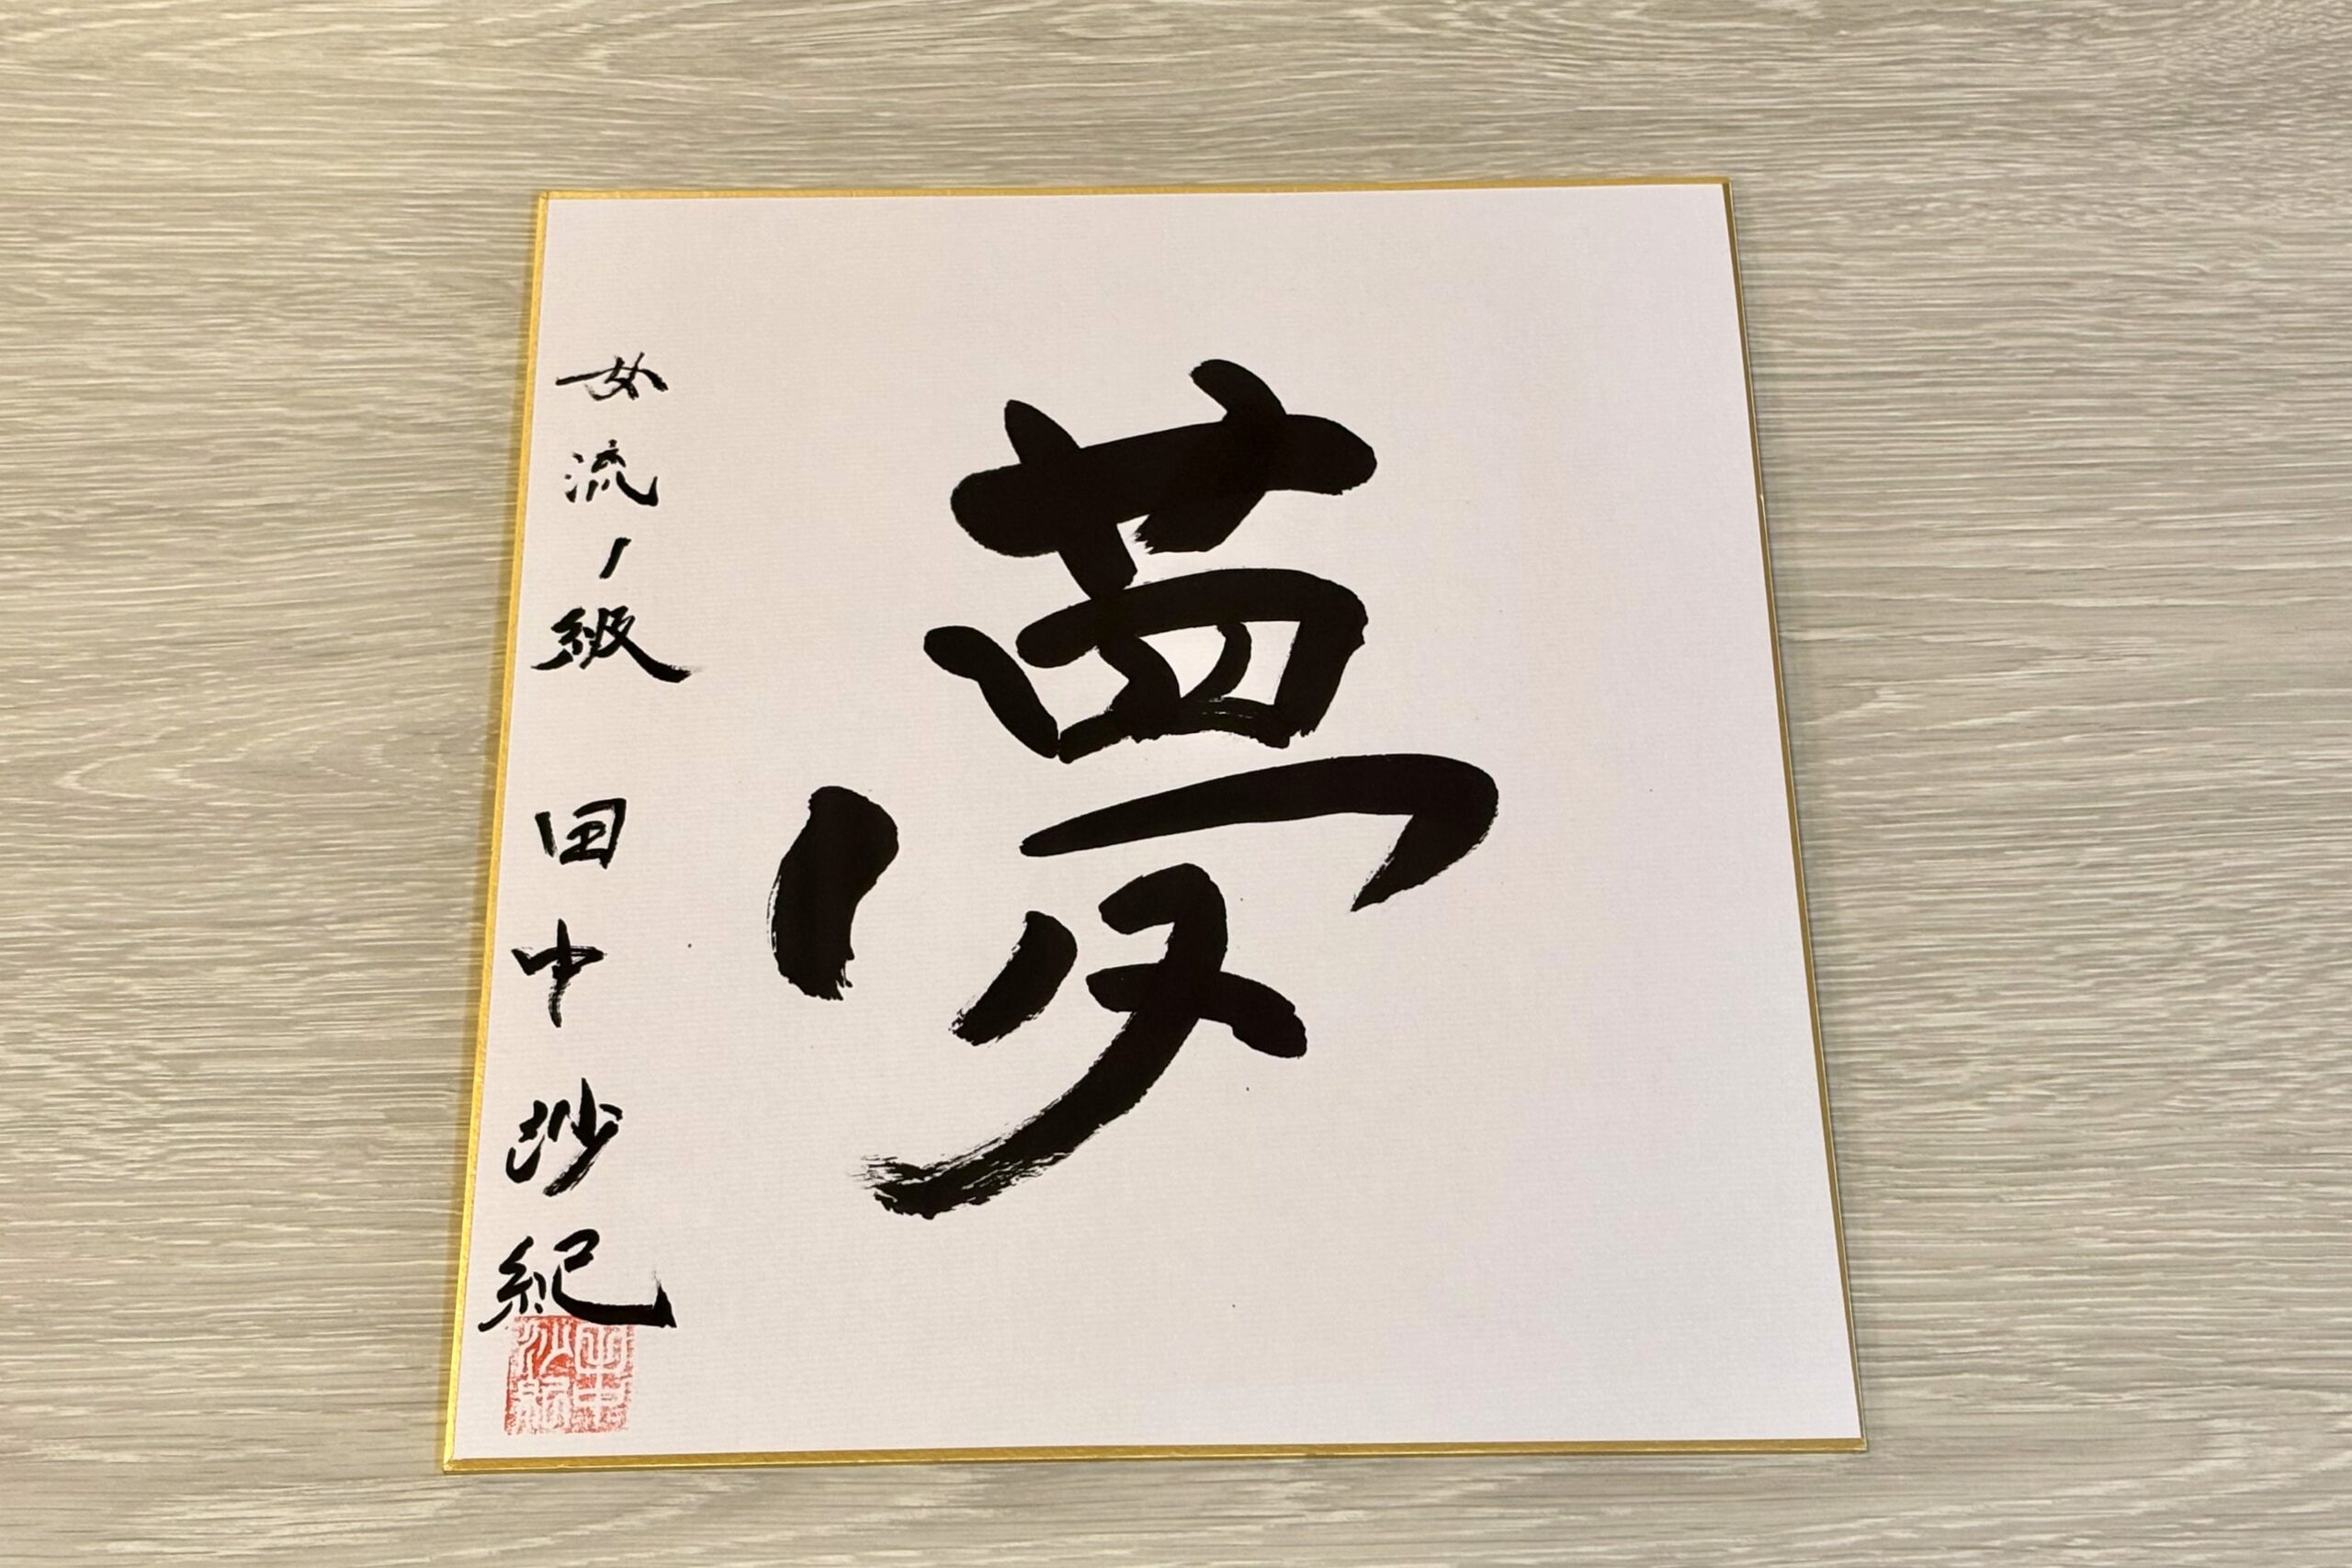 夢
女流1級 田中沙紀
田中
沙紀